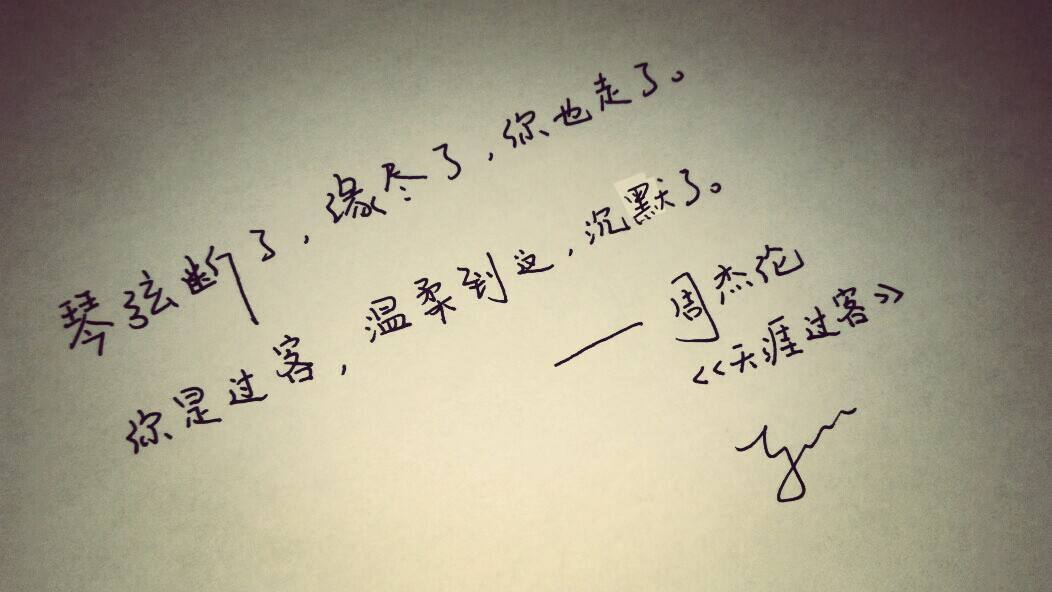 琴弦断了,缘尽了,你也走了。
你是过客,温柔到这,沉默了。
——周杰伦
<<天涯过客>>